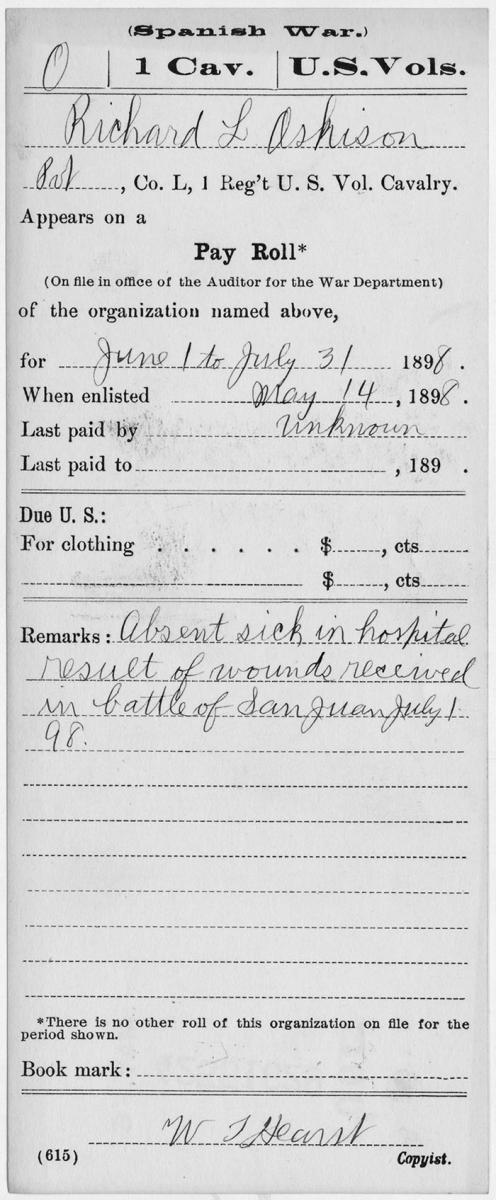 (Spanish War.)
O | 1 Cav. | U.S. Vols.
Richard L Oskison
Pvt, Co. L, 1 Reg't U. S. Vol. Cavalry.
Appears on a
Pay Roll*
(On file in office of the Auditor for the War Department)
of the organization named above,
for June 1 to July 31 1898.
When enlisted May 14, 1898.
Last paid by Unknown
Last paid to , 189 .
Due U. S.:
For clothing . . . . . . $ , cts
$ , cts
Remarks: Absent sick in hospital
result of wounds received
in battle of San Juan July 1
98.
*There is no other roll of this organization on file for the
period shown.
Book mark:
Hearst
(615) Copyist.